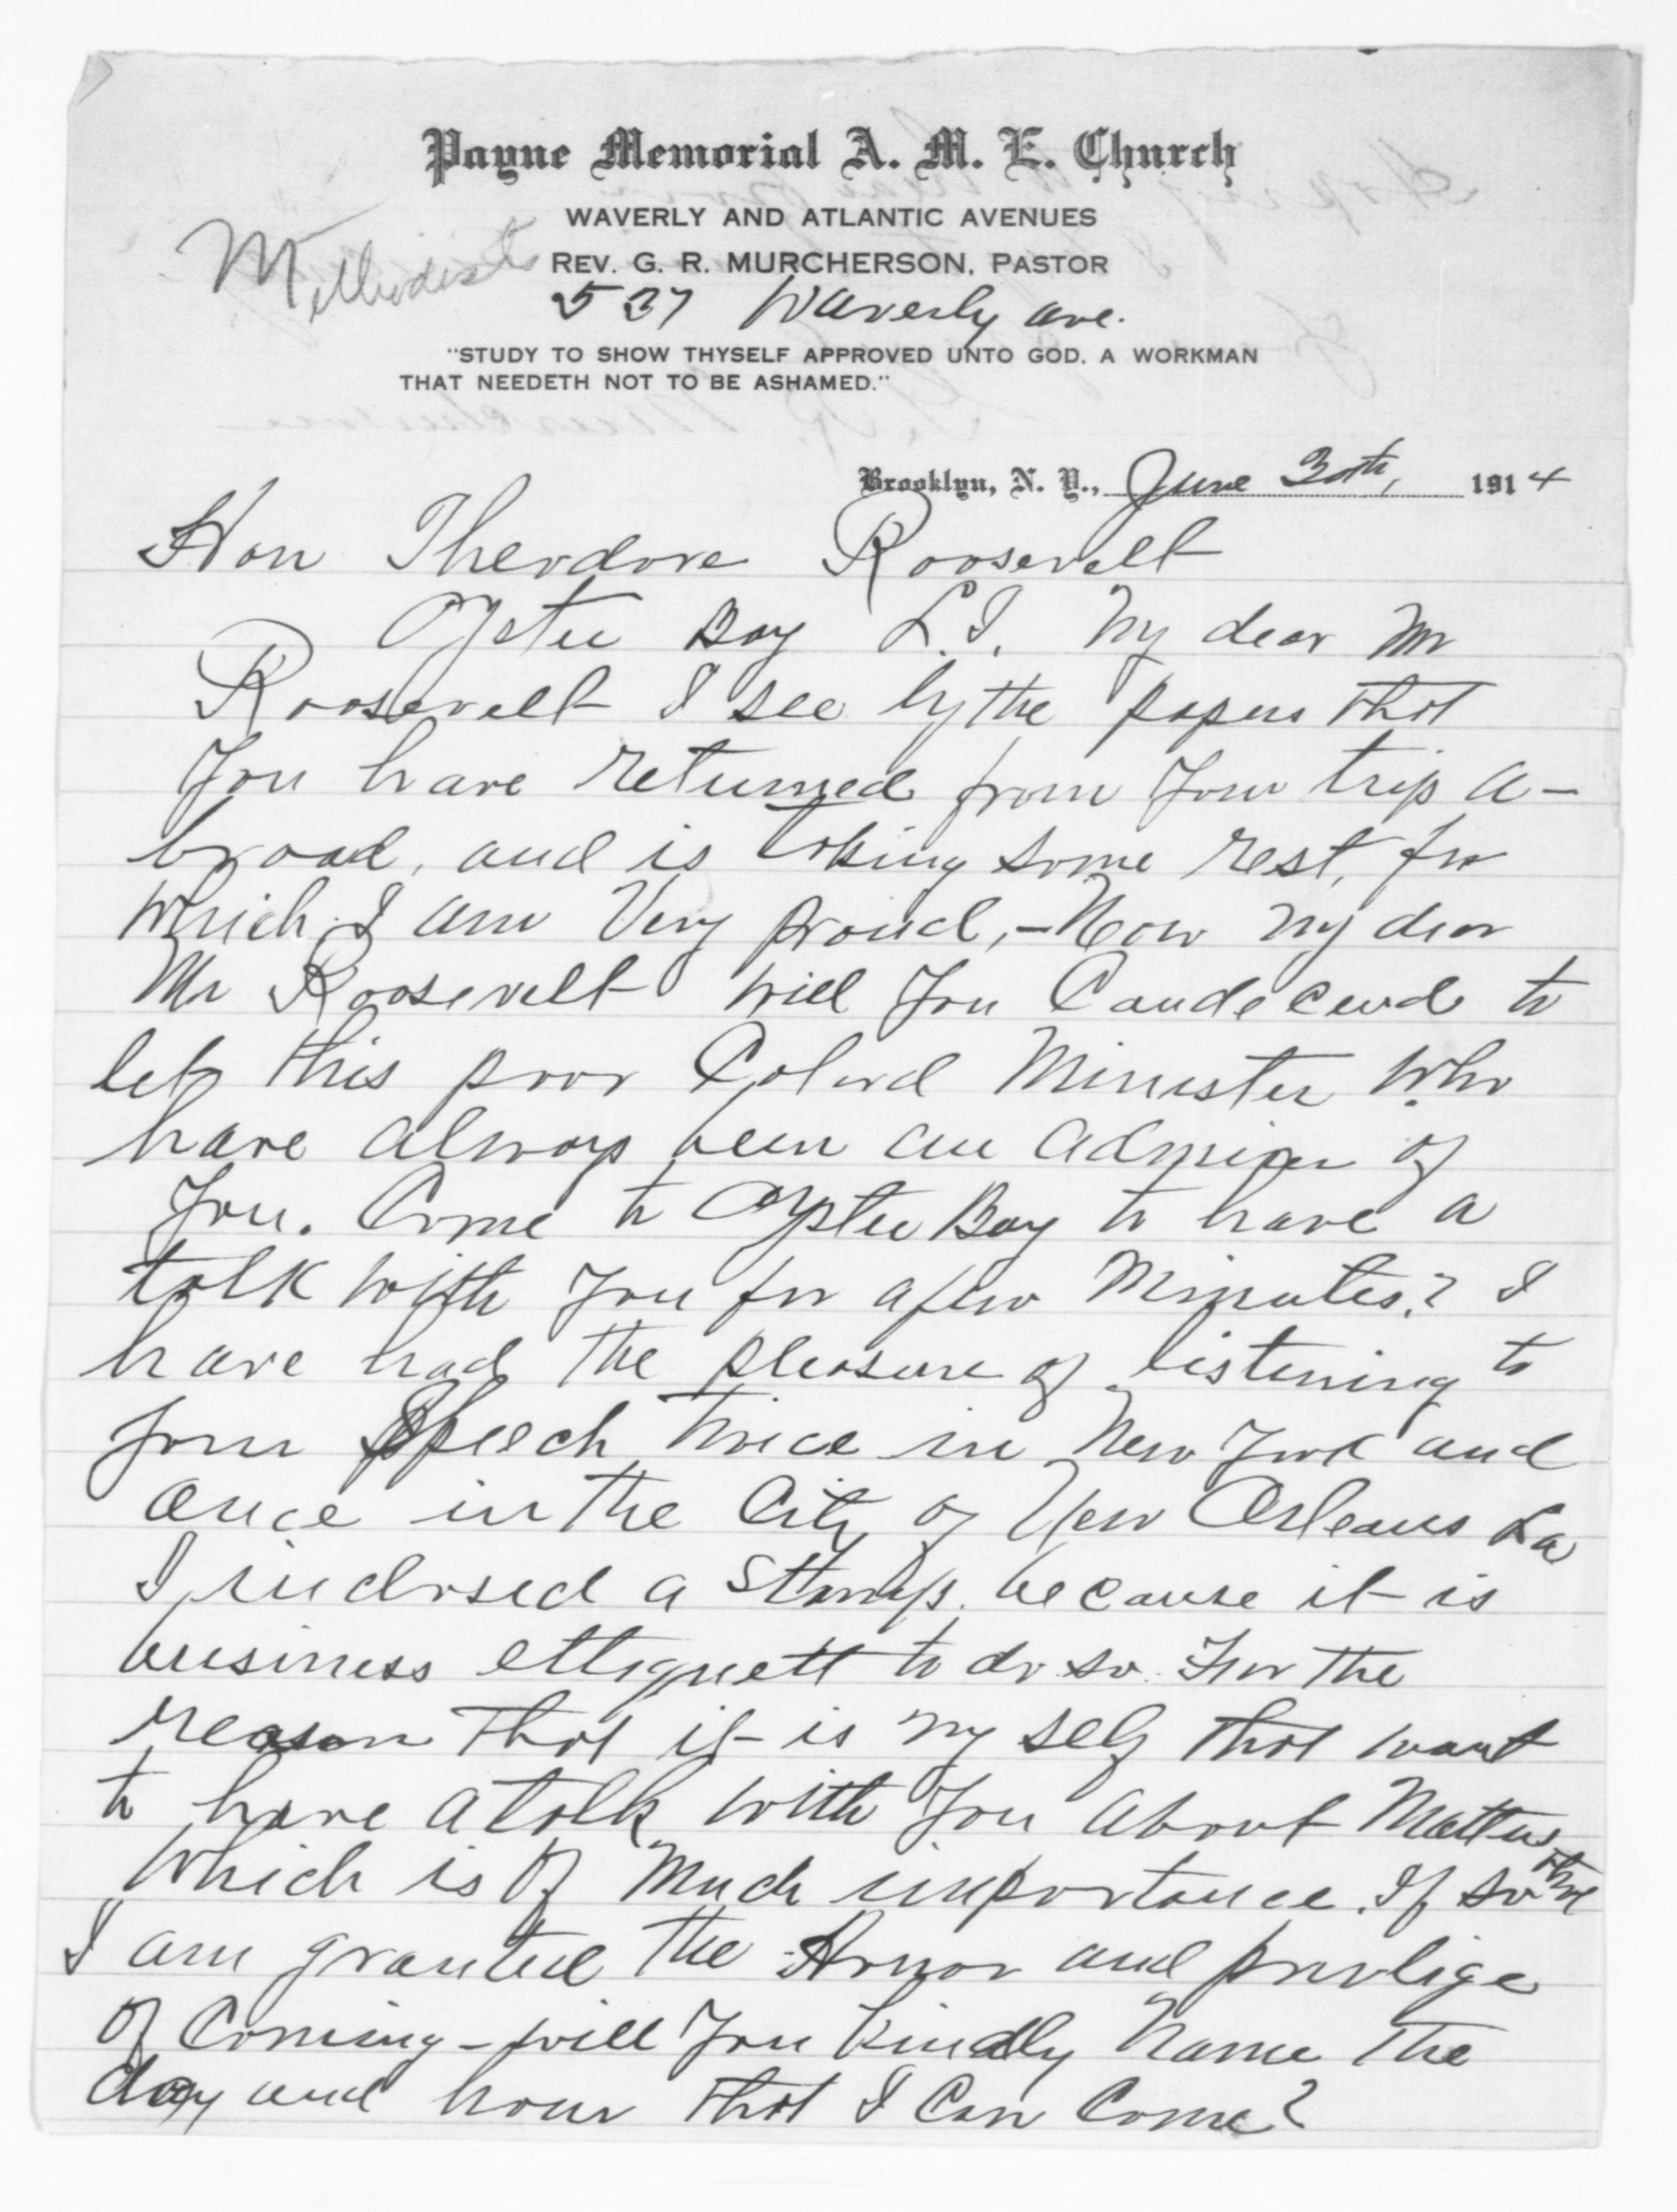 Payne Memorial A. M. E. Church
WAVERLY AND ATLANTIC AVENUES
Methodists
REV. G. R. MURCHERSON, PASTOR
527 Waverly ave.
"STUDY TO SHOW THYSELF APPROVED UNTO GOD, A WORKMAN
THAT NEEDETH NOT TO BE ASHAMED."
Brooklyn, N. Y., June 30th, 1914
Hon Theodore Roosevelt
Oyster Bay L.I. My dear Mr
Roosevelt I see by the papers that
You have returned from Your trip a-
broad, and is taking some rest, for
which I am Very proud,- Now my dear
Mr Roosevelt will You Candecend to
let this poor Colord Minister who
have always been an admirer of
You. Come to Oyster Bay to have a
talk with You for a few Minutes? I
have had the pleasure of listening to
Your Speech twice in New York and
once in the City of New Orleans La
I inclosed a Stamp. because it is
business ettiquett to do so. For the
reason that it is my self that want
to have a talk with You about Matters
which is of Much importance. If so
I am granted the Honor and privlige
of Coming - will You Kindly Name the
day and hour that I Can Come?